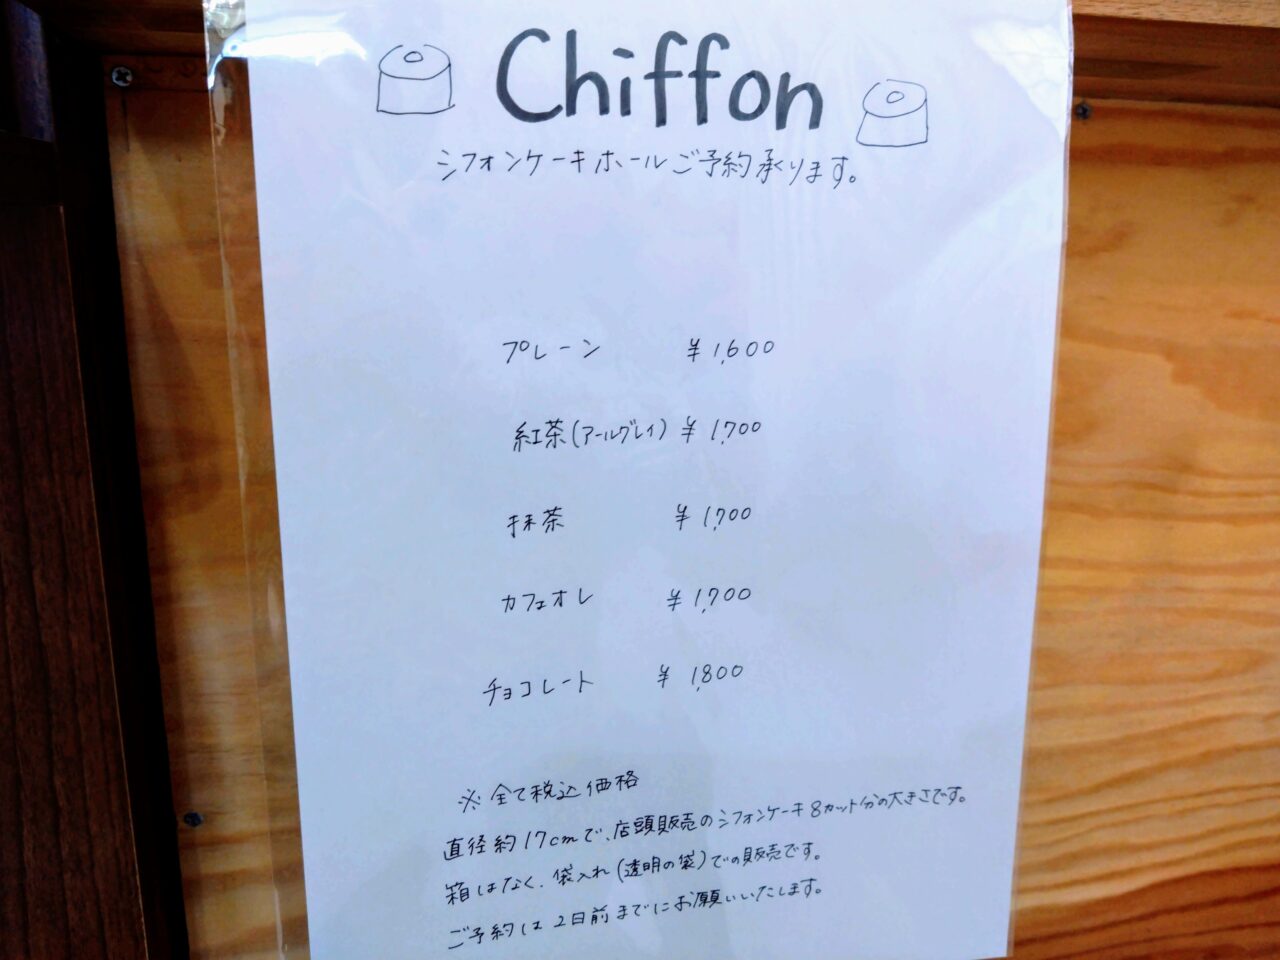 Chiffon
シフォンケーキホールご予約承ります。
プレーン ¥1,600
紅茶(アールグレイ) ¥1,700
抹茶 ¥1,700
カフェオレ ¥1,700
チョコレート ¥1,800
※全て税込価格
直径約17cmで、店頭販売のシフォンケーキ8カット分の大きさです。
箱はなく、袋入れ(透明の袋)での販売です。
ご予約は2日前までにお願いいたします。